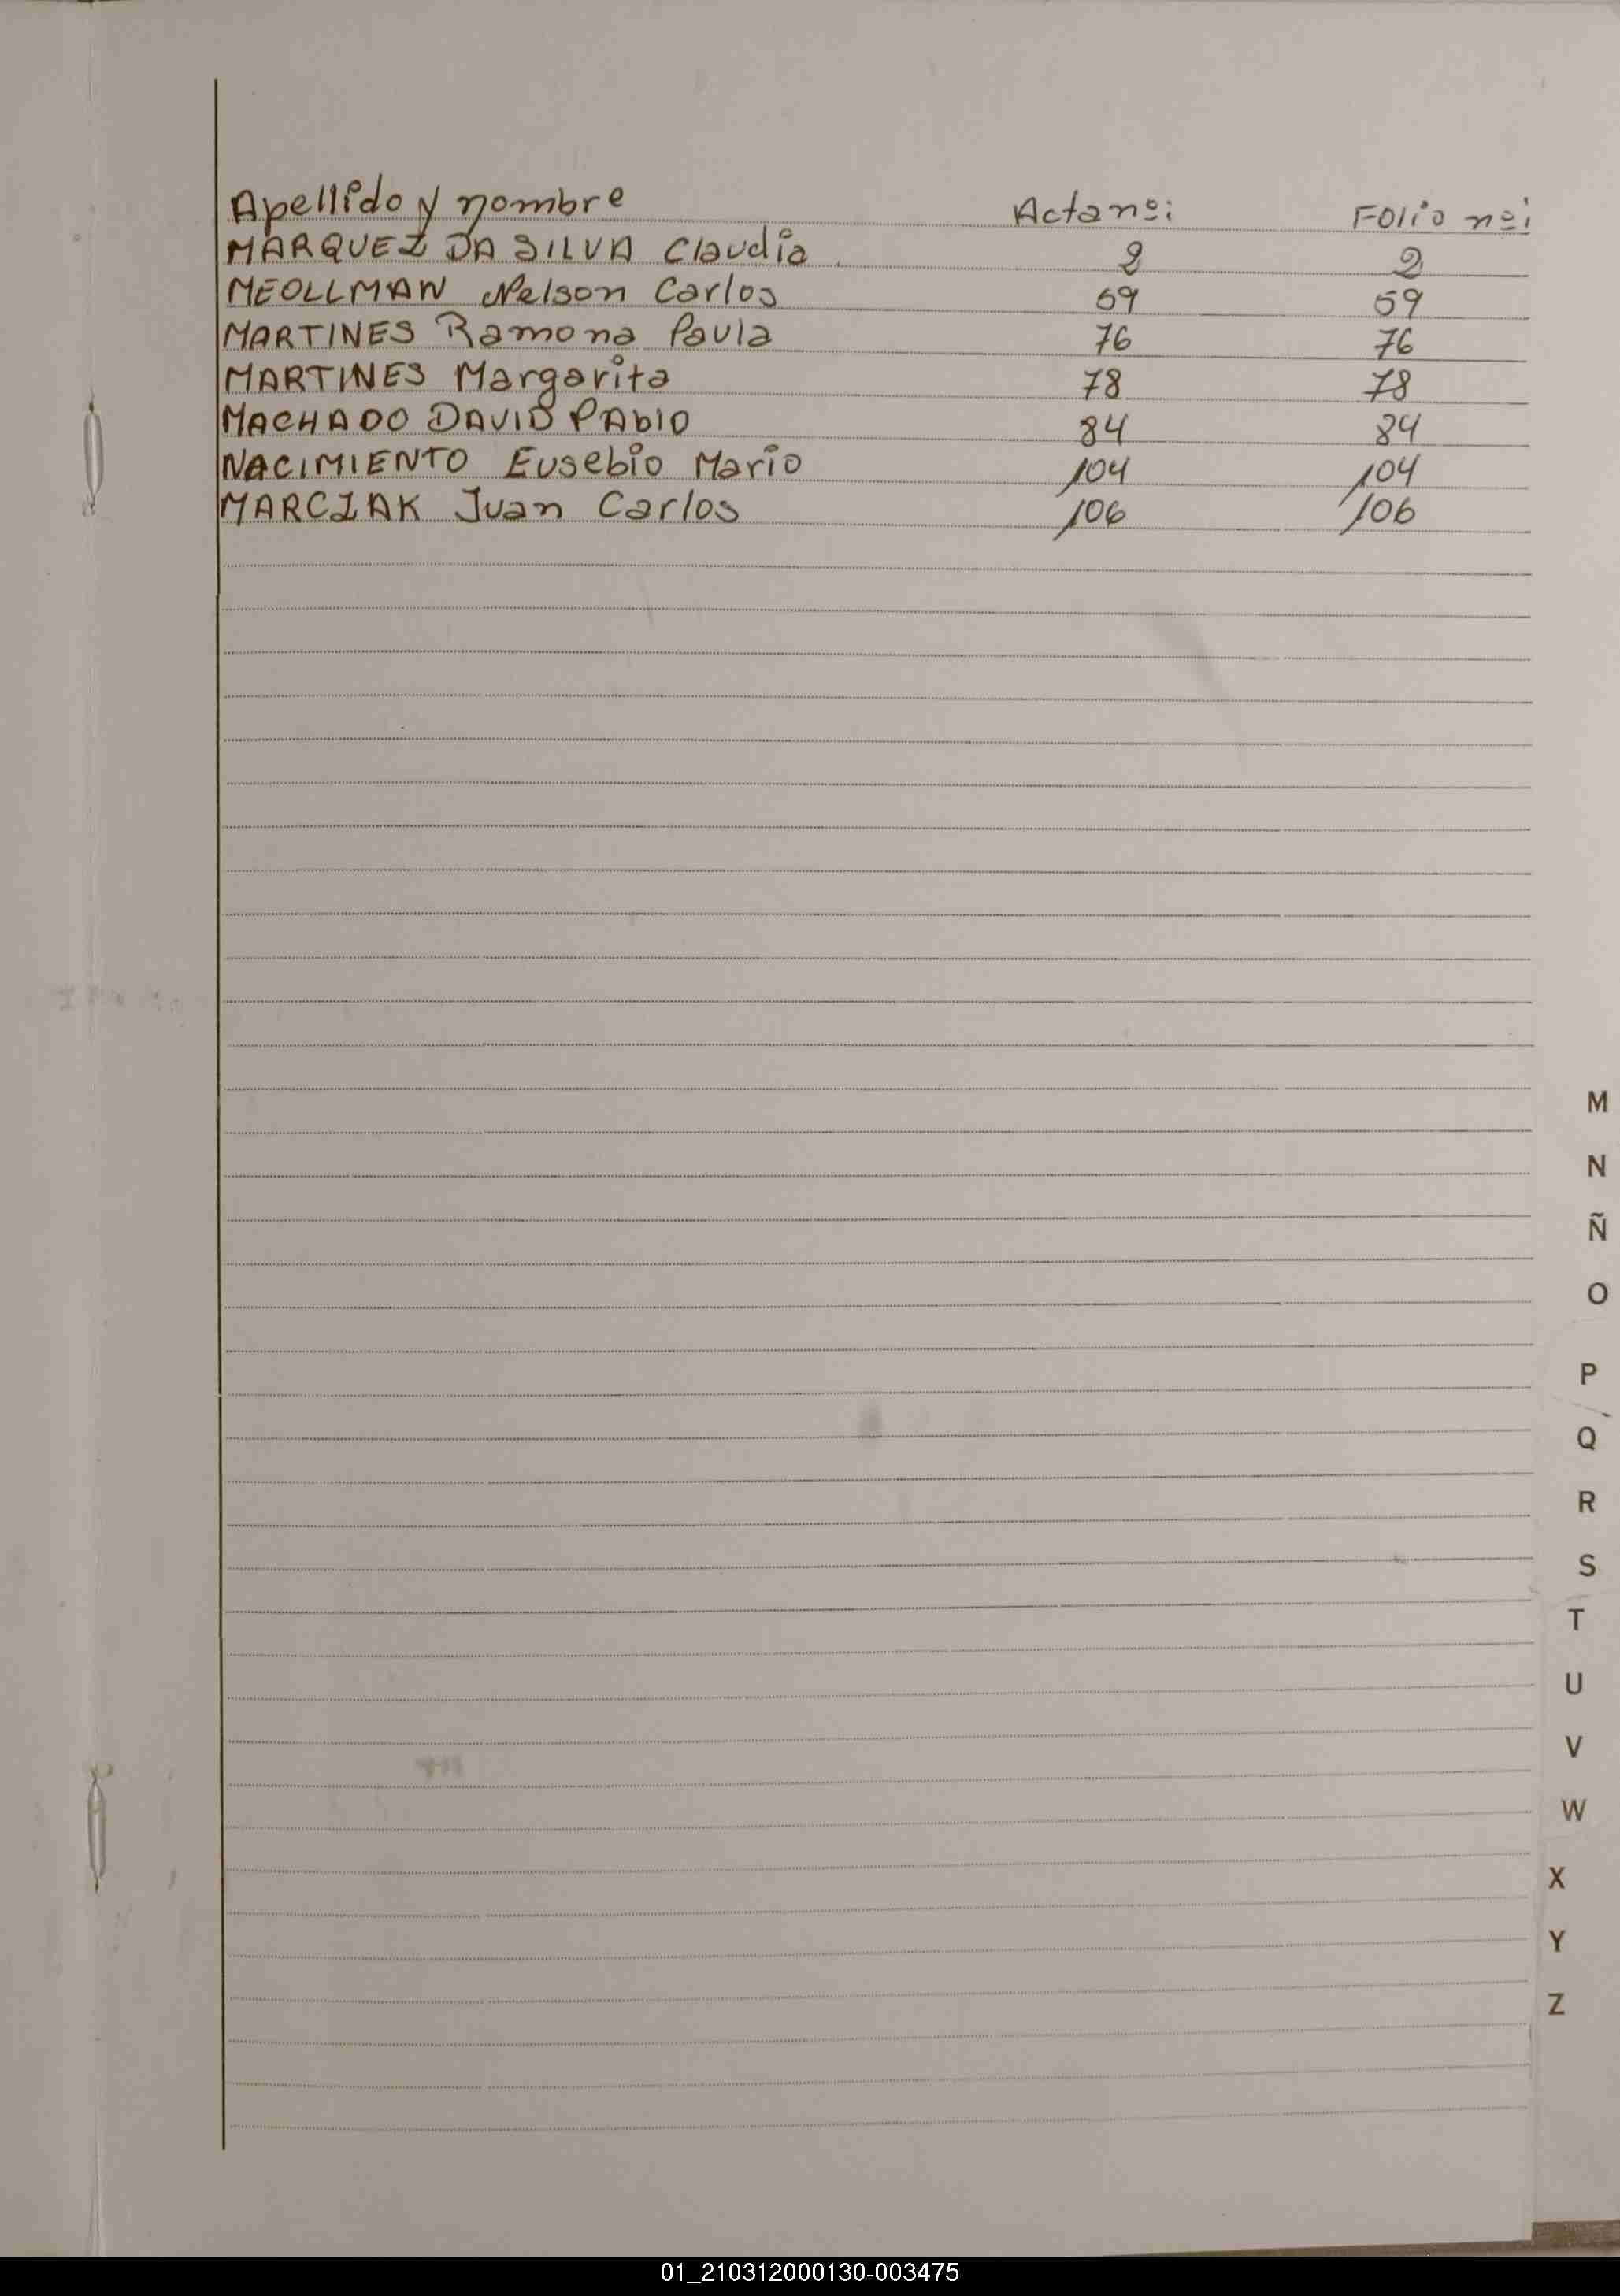 Apellido y nombre Acta nº: Folio nº:
MARQUEZ DA SILVA Claudia 2 2
MEOLLMAN Nelson Carlos 59 59
MARTINES Ramona Paula 76 76
MARTINES Margarita 78 78
MACHADO DAVID PAblO 84 84
NACIMIENTO Eusebio Mario 104 104
MARCZAK Juan Carlos 106 106
M
N
Ñ
O
P
Q
R
S
T
U
V
W
X
Y
Z
01_210312000130-003475